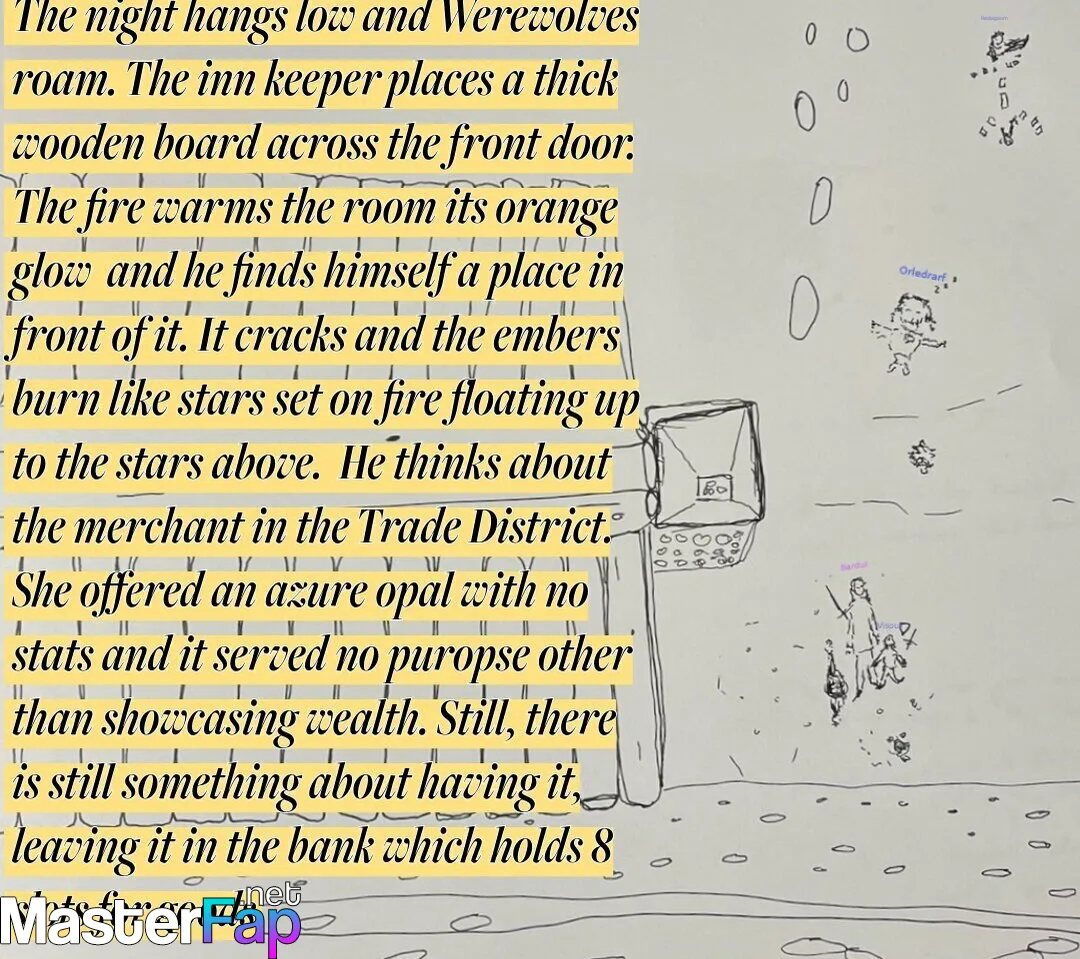 The night hangs low and Werewolves
roam. The inn keeper places a thick
wooden board across the front door.
The fire warms the room its orange
glow and he finds himself a place in
front of it. It cracks and the embers
burn like stars set on fire floating up
to the stars above. He thinks about
the merchant in the Trade District.
She offered an azure opal with no
stats and it served no puropse other
than showcasing wealth. Still, there
is still something about having it,
leaving it in the bank which holds 8
slots for goods
MasterFap.net
Orledrarf
z z z